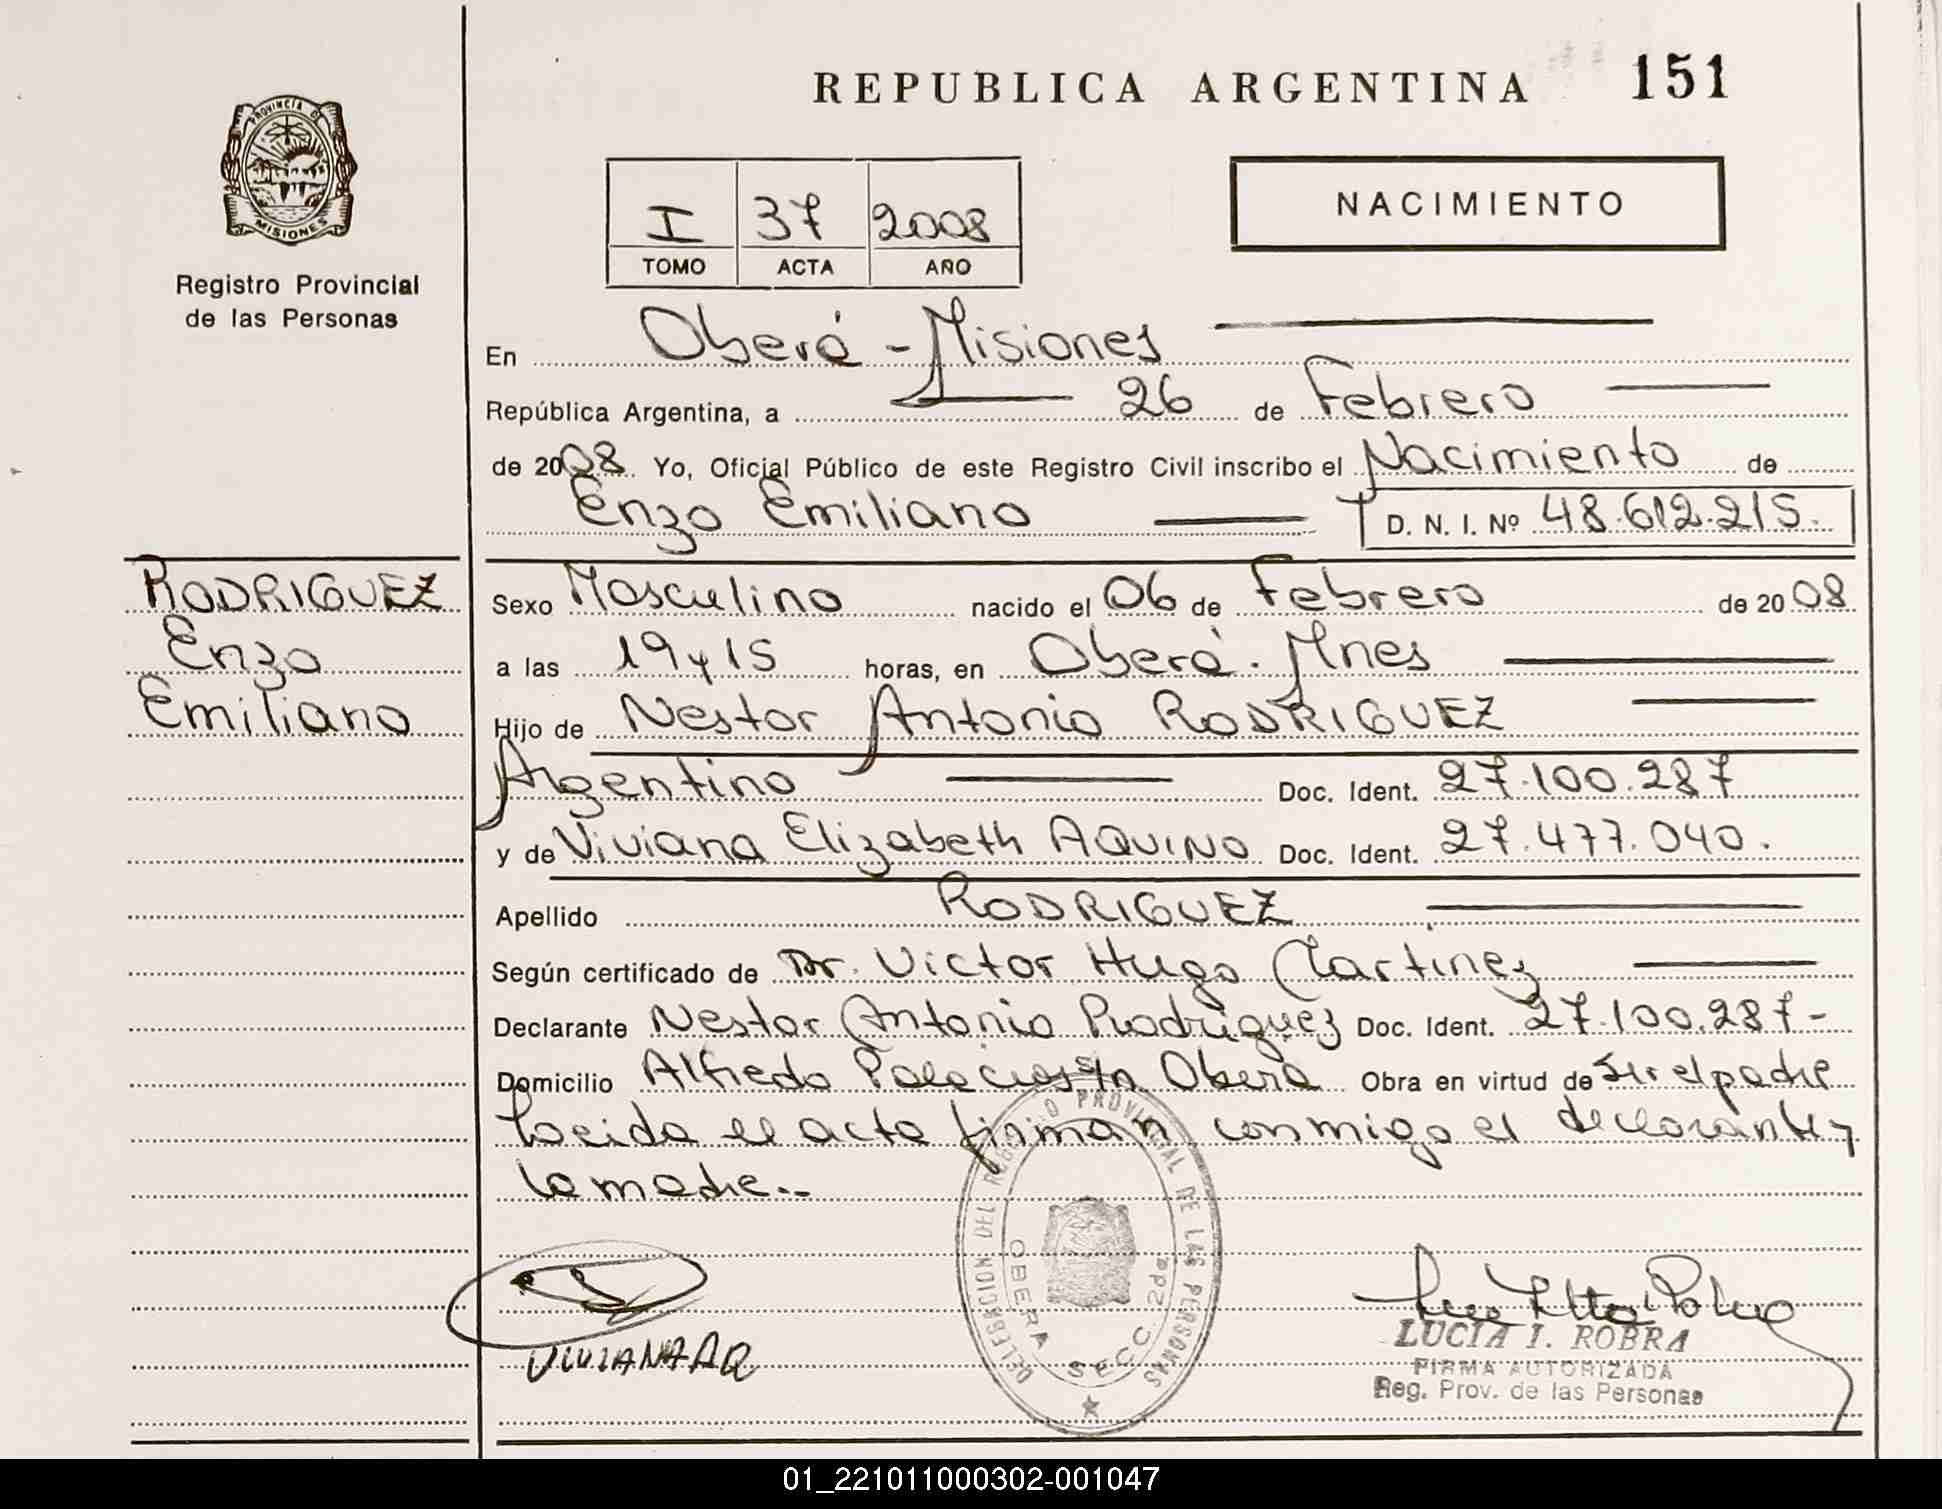 REPUBLICA ARGENTINA 151
PROVINCIA DE
MISIONES
Registro Provincial
de las Personas
I 37 2008
TOMO ACTA AÑO
NACIMIENTO
En Oberá - Misiones
República Argentina, a 26 de Febrero
de 2008. Yo, Oficial Público de este Registro Civil inscribo el Nacimiento de
Enzo Emiliano D. N. I. Nº 48.612.215.
RODRIGUEZ
Enzo
Emiliano
Sexo Masculino nacido el 06 de Febrero de 2008
a las 19 y 15 horas, en Oberá. Mnes
Hijo de Nestor Antonio RODRIGUEZ
Argentino Doc. Ident. 27.100.287
y de Viviana Elizabeth AQUINO Doc. Ident. 27.477.040.
Apellido RODRIGUEZ
Según certificado de Dr. Victor Hugo Martinez
Declarante Nestor Antonio Rodriguez Doc. Ident. 27.100.287-
Domicilio Alfredo Palacios s/n Oberá Obra en virtud de ser el padre
Loeida el acta firman conmigo el declarante y
la madre.-
DELEGACION DEL REGISTRO PROVINCIAL DE LAS PERSONAS
OBERA SECC. 2da
VIVIANA AQ
LUCIA I. ROBRA
FIRMA AUTORIZADA
Reg. Prov. de las Personas
01_221011000302-001047